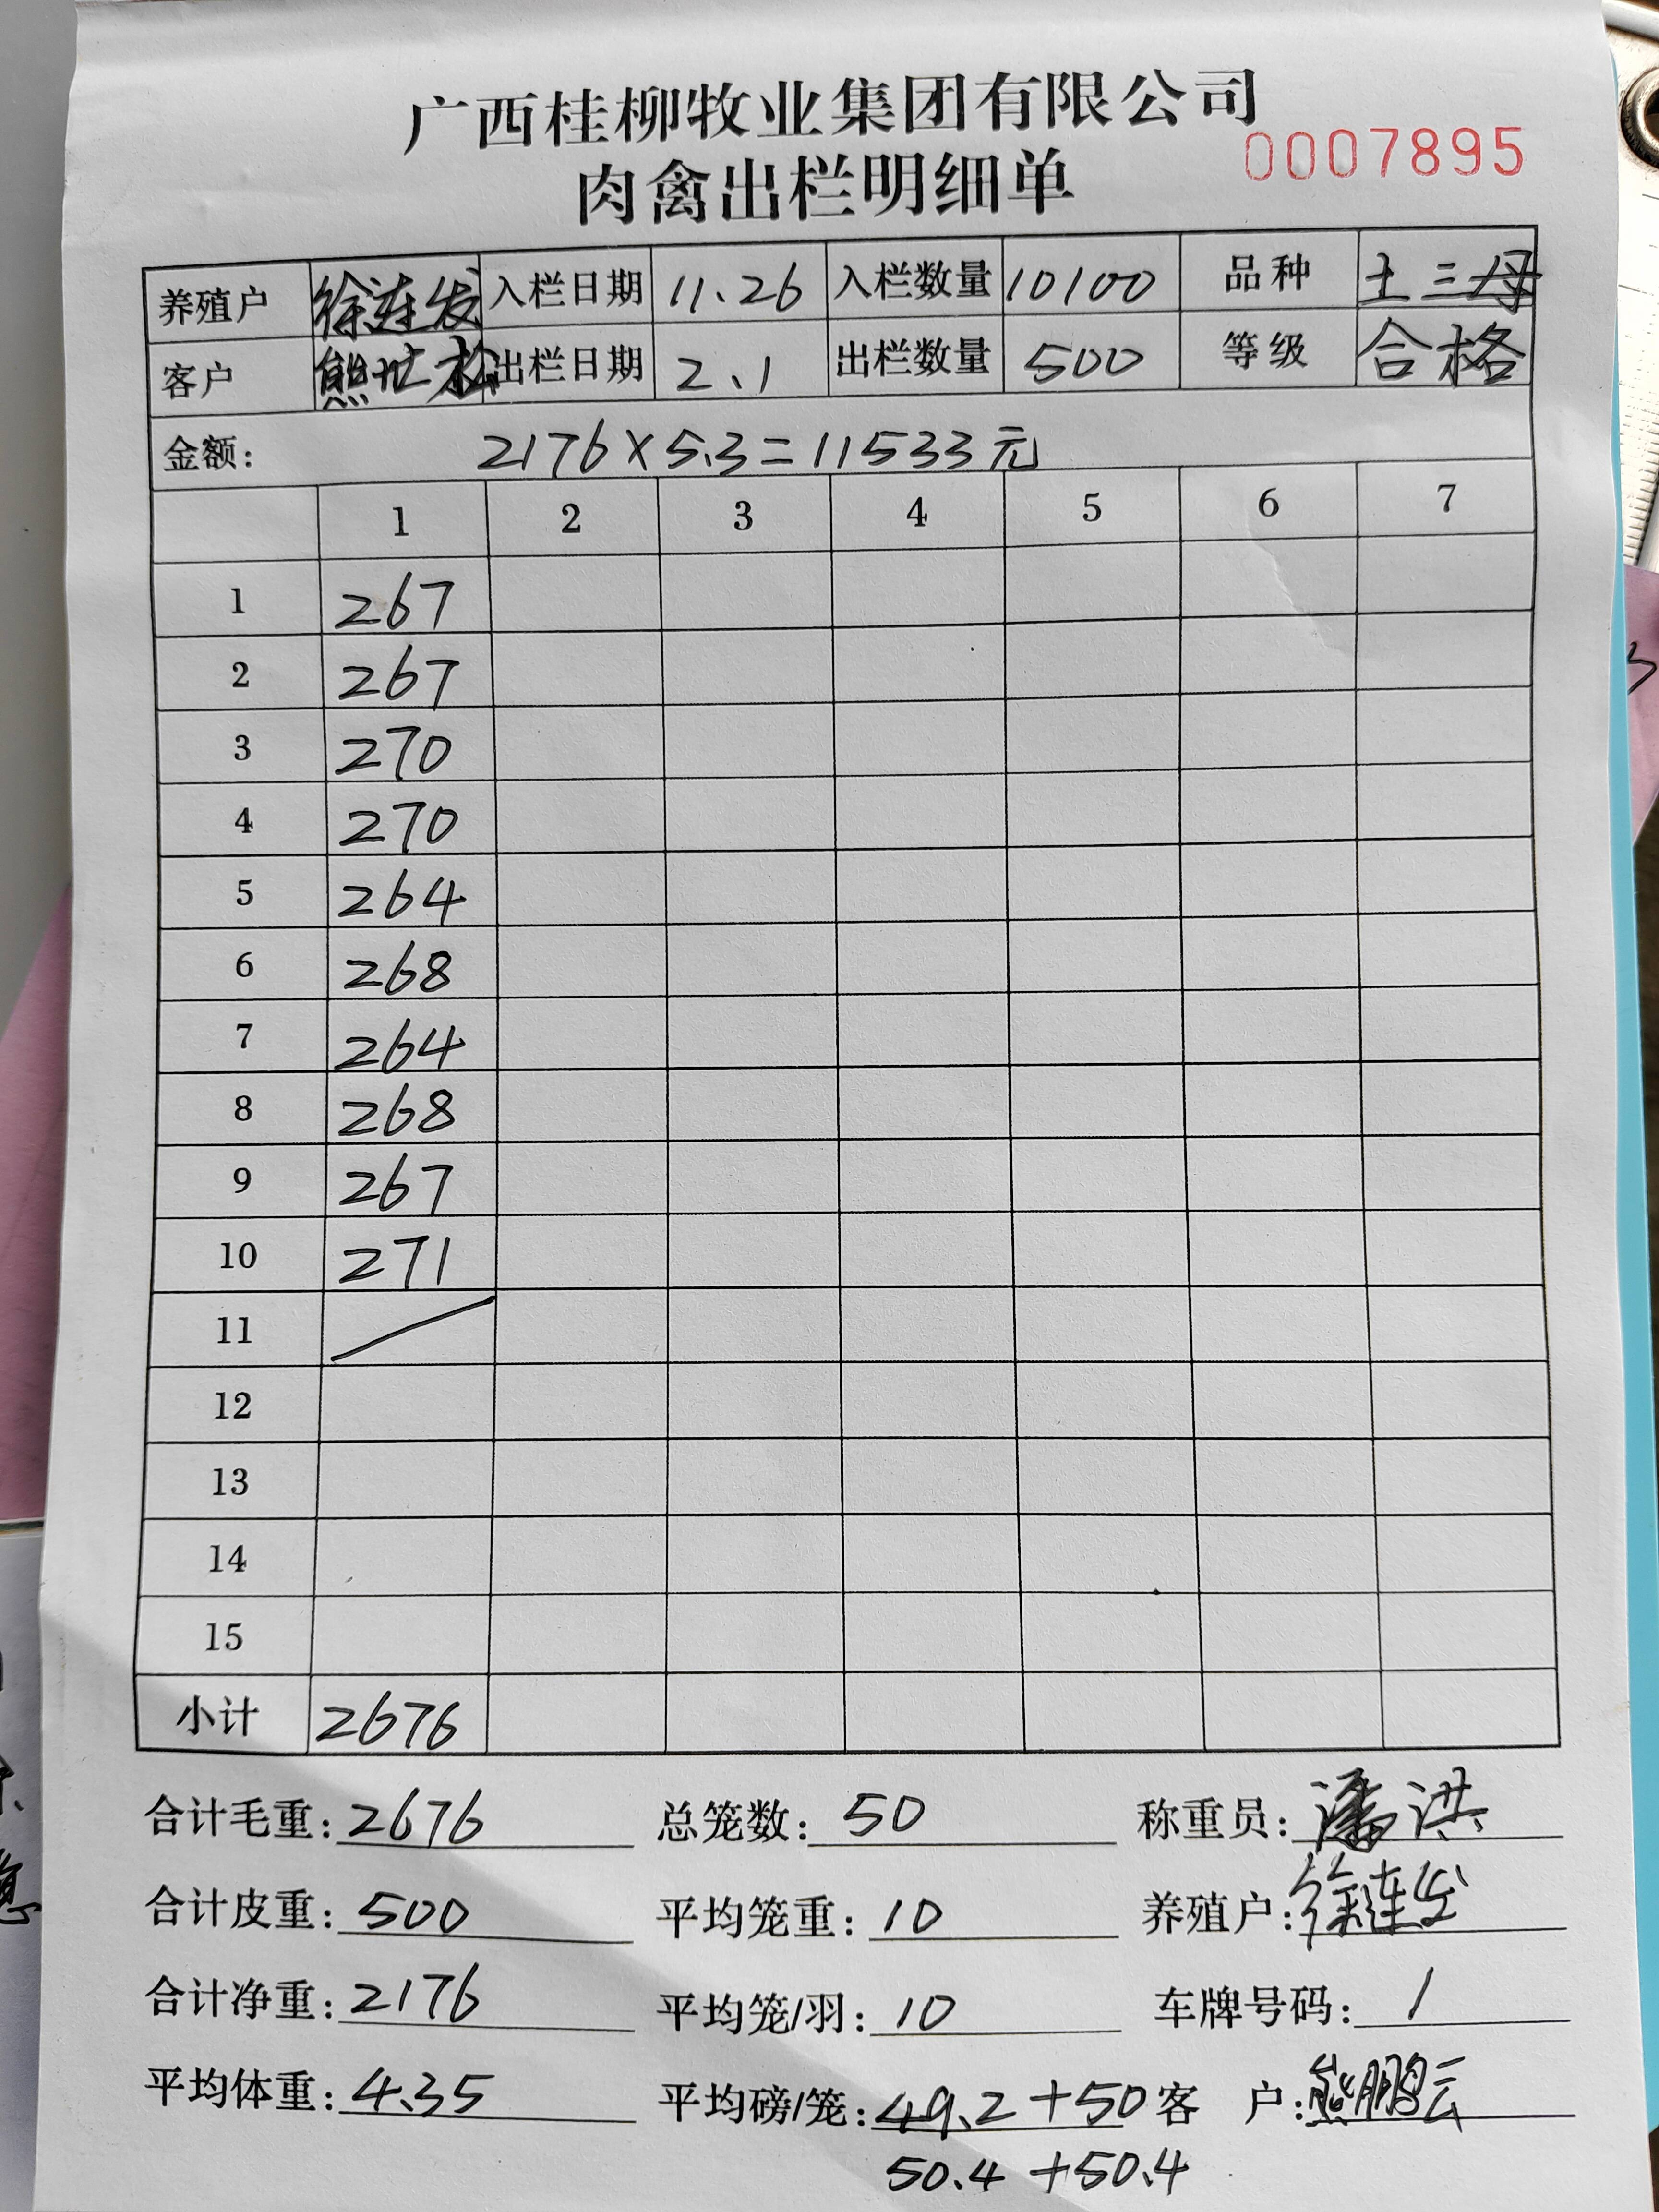 广西桂柳牧业集团有限公司
肉禽出栏明细单 0007895
养殖户 徐连发 入栏日期 11.26 入栏数量 10100 品种 土三母
客户 熊 松 出栏日期 2.1 出栏数量 500 等级 合格
金额: 2176×5.3=11533元
1 2 3 4 5 6 7
1 267
2 267
3 270
4 270
5 264
6 268
7 264
8 268
9 267
10 271
11 /
12
13
14
15
小计 2676
合计毛重: 2676 总笼数: 50 称重员: 潘洪
合计皮重: 500 平均笼重: 10 养殖户: 徐连发
合计净重: 2176 平均笼/羽: 10 车牌号码: /
平均体重: 4.35 平均磅/笼: 49.2+50 客 户: 熊鹏云
50.4+50.4